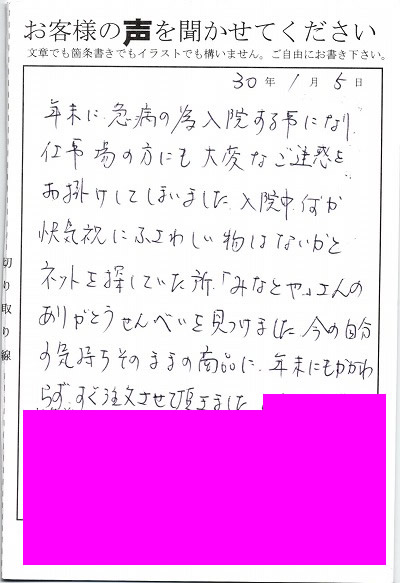 お客様の声を聞かせてください
文章でも箇条書きでもイラストでも構いません。ご自由にお書き下さい。
30年1月5日
年末に急病の為入院する事になり
仕事場の方にも大変なご迷惑を
お掛けしてしまいました。入院中何か
快気祝にふさわしい物はないかと
ネットを探していた所、「みなとや」さんの
ありがとうせんべいを見つけました。今の自分
の気持ちそのままの商品に、年末にもかかわ
らず、すぐ注文させて頂きました
切り取り線